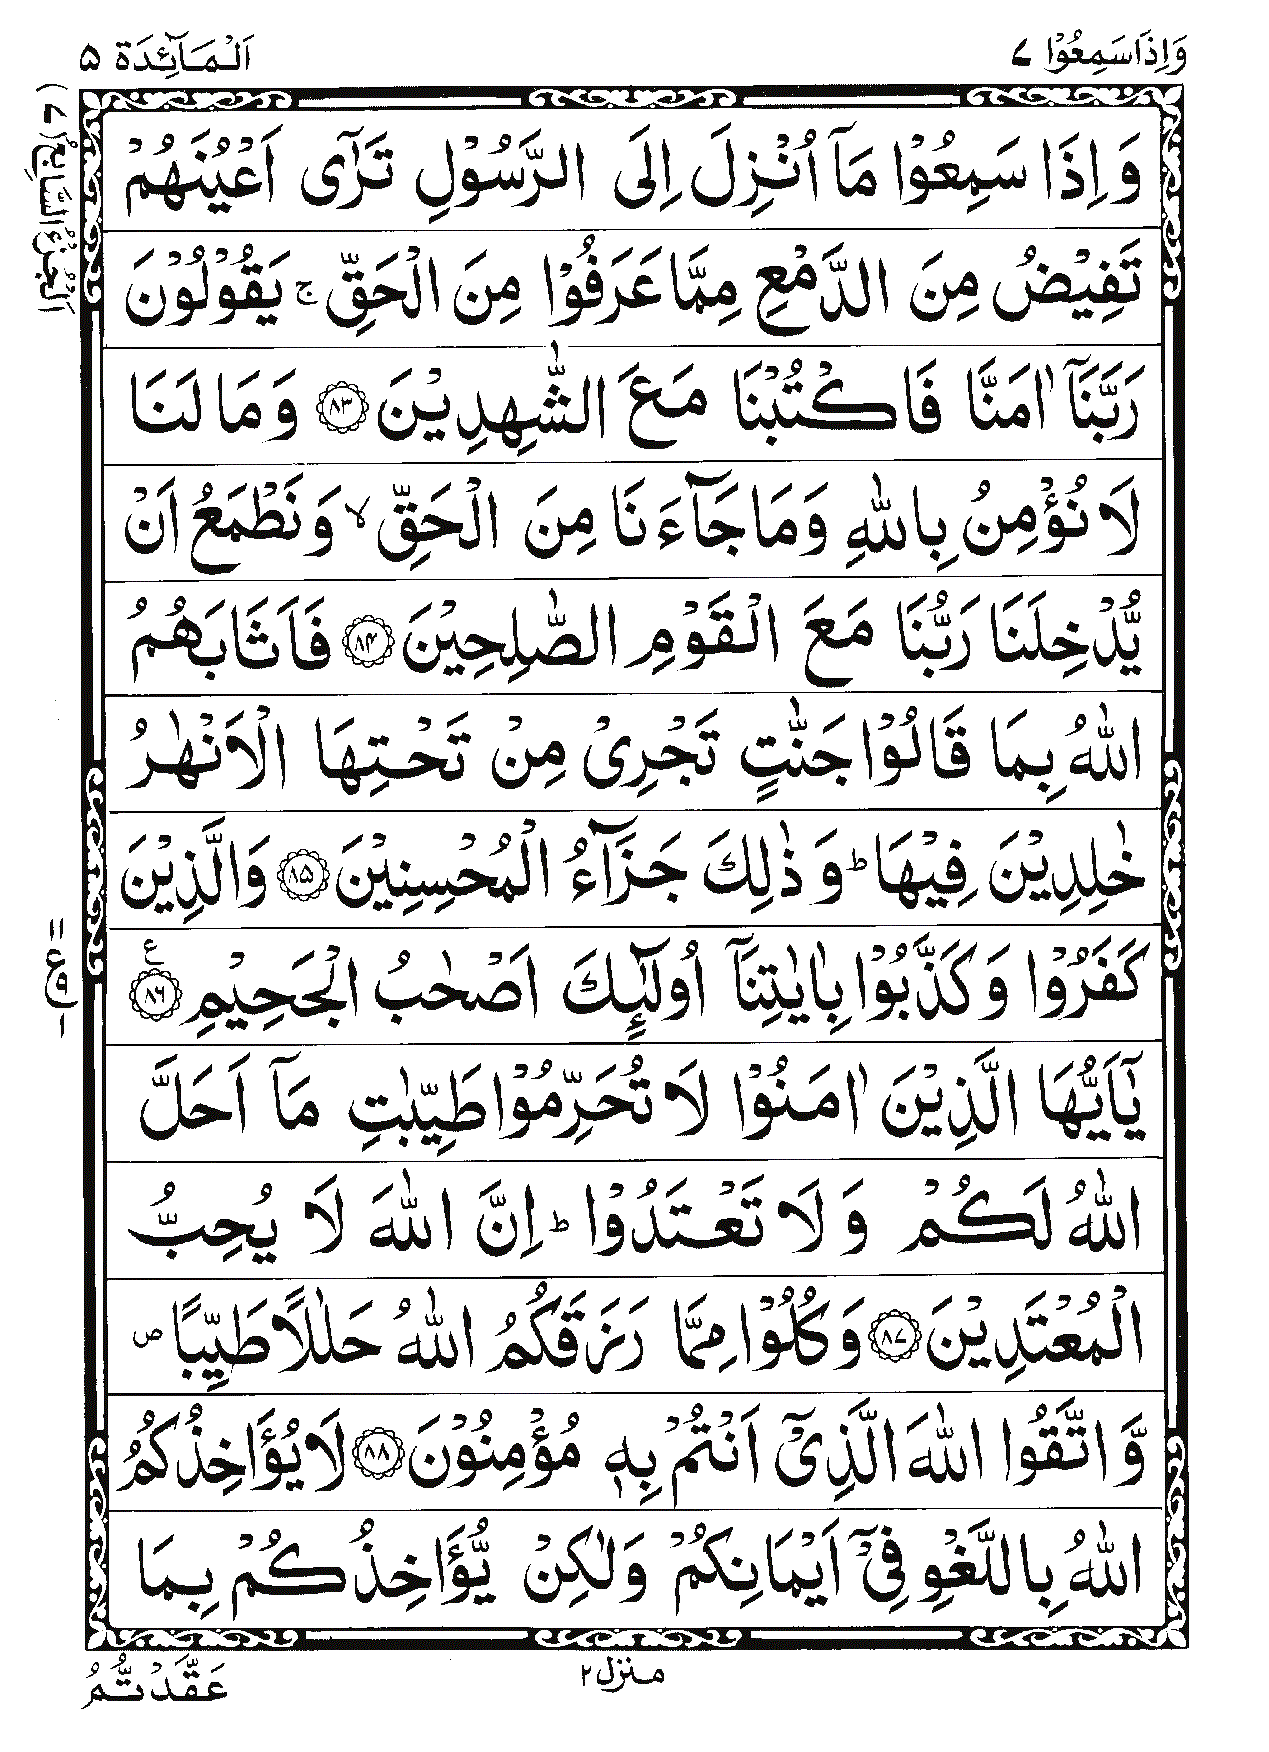 وَاِذَاسَمِعُوْا ۷
اَلْمَآئِدَة ۵
اَلْجُزْءُ السَّابِعُ (۷)
وَ اِذَا سَمِعُوْا مَآ اُنْزِلَ اِلَى الرَّسُوْلِ تَرٰٓى اَعْيُنَهُمْ
تَفِيْضُ مِنَ الدَّمْعِ مِمَّا عَرَفُوْا مِنَ الْحَقِّ ۚ يَقُوْلُوْنَ
رَبَّنَآ اٰمَنَّا فَاكْتُبْنَا مَعَ الشّٰهِدِيْنَ ﴿۸۳﴾ وَمَا لَنَا
لَا نُؤْمِنُ بِاللّٰهِ وَمَا جَآءَنَا مِنَ الْحَقِّ ۙ وَنَطْمَعُ اَنْ
يُّدْخِلَنَا رَبُّنَا مَعَ الْقَوْمِ الصّٰلِحِيْنَ ﴿۸۴﴾ فَاَثَابَهُمُ
اللّٰهُ بِمَا قَالُوْا جَنّٰتٍ تَجْرِىْ مِنْ تَحْتِهَا الْاَنْهٰرُ
خٰلِدِيْنَ فِيْهَا ؕ وَ ذٰلِكَ جَزَآءُ الْمُحْسِنِيْنَ ﴿۸۵﴾ وَالَّذِيْنَ
كَفَرُوْا وَكَذَّبُوْا بِاٰيٰتِنَآ اُولٰٓئِكَ اَصْحٰبُ الْجَحِيْمِ ﴿۸۶﴾ ع
يٰٓاَيُّهَا الَّذِيْنَ اٰمَنُوْا لَا تُحَرِّمُوْا طَيِّبٰتِ مَآ اَحَلَّ
اللّٰهُ لَكُمْ وَ لَا تَعْتَدُوْا ؕ اِنَّ اللّٰهَ لَا يُحِبُّ
الْمُعْتَدِيْنَ ﴿۸۷﴾ وَكُلُوْا مِمَّا رَزَقَكُمُ اللّٰهُ حَلٰلًا طَيِّبًا ص
وَّاتَّقُوا اللّٰهَ الَّذِىْٓ اَنْتُمْ بِهٖ مُؤْمِنُوْنَ ﴿۸۸﴾ لَا يُؤَاخِذُكُمُ
اللّٰهُ بِاللَّغْوِ فِىْٓ اَيْمَانِكُمْ وَلٰكِنْ يُّؤَاخِذُكُمْ بِمَا
منزل ۲
عَقَّدْتُّمُ